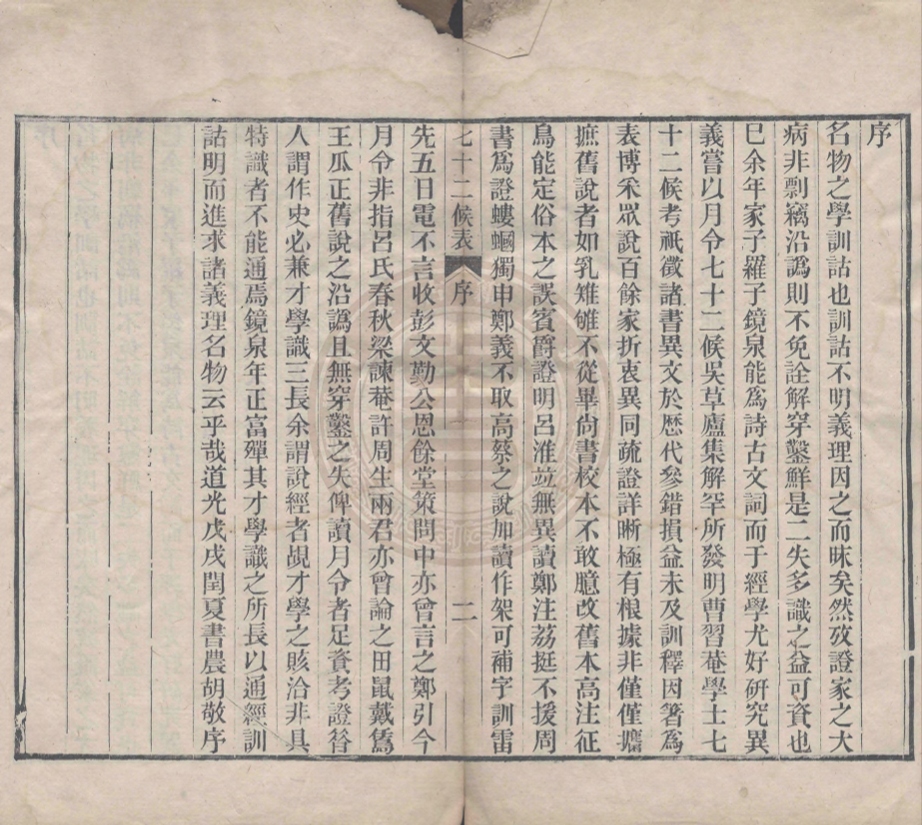 序
名物之學訓詁也訓詁不明義理因之而昧矣然攷證家之大
病非剽竊沿譌則不免詮解穿鑿鮮是二失多識之益可資也
巳余年家子羅子鏡泉能爲詩古文詞而于經學尤好硏究異
義嘗以月令七十二候吳草廬集解罕所發明曹習菴學士七
十二候考祇徵諸書異文於歴代參錯損益未及訓釋因箸爲
表博采眾說百餘家折衷異同疏證詳晰極有根據非僅僅攟
摭舊說者如乳雉雊不從畢尚書校本不敢臆改舊本高注征
鳥能定俗本之誤賓爵證明呂淮竝無異讀鄭注荔挺不援周
書爲證螻蟈獨申鄭義不取高蔡之說加讀作架可補字訓雷
七十二候表 序 二
先五日電不言收彭文勤公恩餘堂策問中亦曾言之鄭引今
月令非指呂氏春秋梁諫菴許周生兩君亦曾論之田鼠戴鵀
王瓜正舊說之沿譌且無穿鑿之失俾讀月令者足資考證昝
人謂作史必兼才學識三長余謂說經者覘才學之賅洽非具
特識者不能通焉鏡泉年正富殫其才學識之所長以通經訓
詁明而進求諸義理名物云乎哉道光戊戌閏夏書農胡敬序